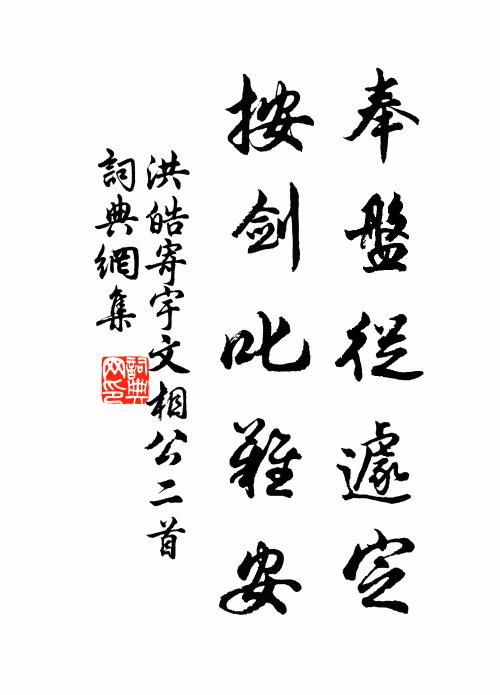 奉盤從遽定
按劍叱難安
洪皓寄宇文相公二首
詞典網集
詞典
网印